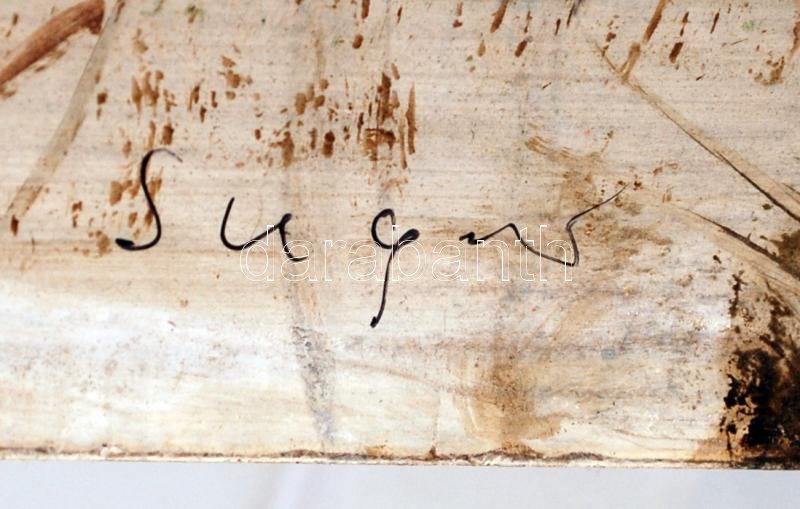 Sugar
darabanth